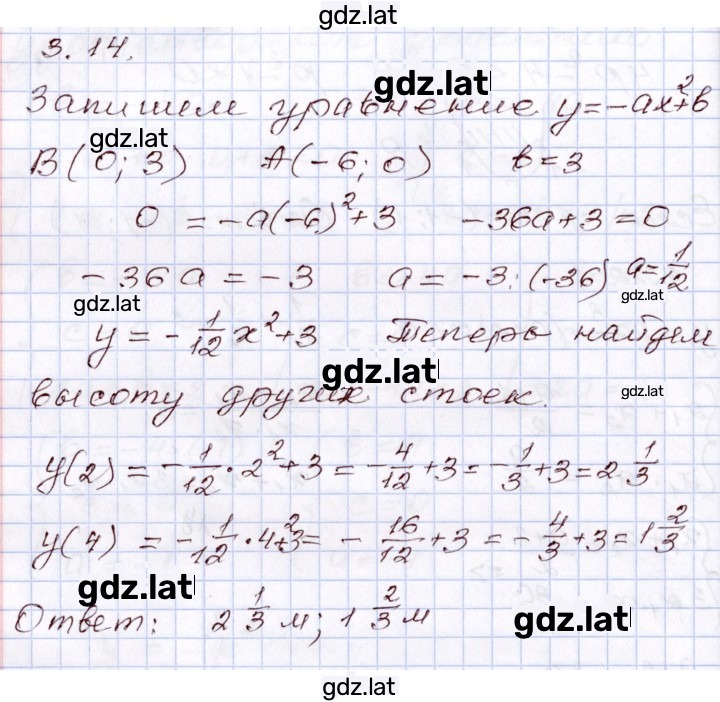 gdz.lat
3.14.
gdz.lat
Запишем уравнение y=-ax²+b
gdz.lat
B(0; 3) A(-6; 0) b=3
0 = -a(-6)²+3 -36a+3=0
-36a = -3 a = -3:(-36) a=1/12
gdz.lat gdz.lat
y = -1/12x²+3 Теперь найдем
gdz.lat gdz.lat
высоту других стоек.
y(2) = -1/12·2²+3 = -4/12+3 = -1/3+3 = 2 1/3
y(4) = -1/12·4²+3 = -16/12+3 = -4/3+3 = 1 2/3
gdz.lat
Ответ: 2 1/3 м; 1 2/3 м
gdz.lat
gdz.lat